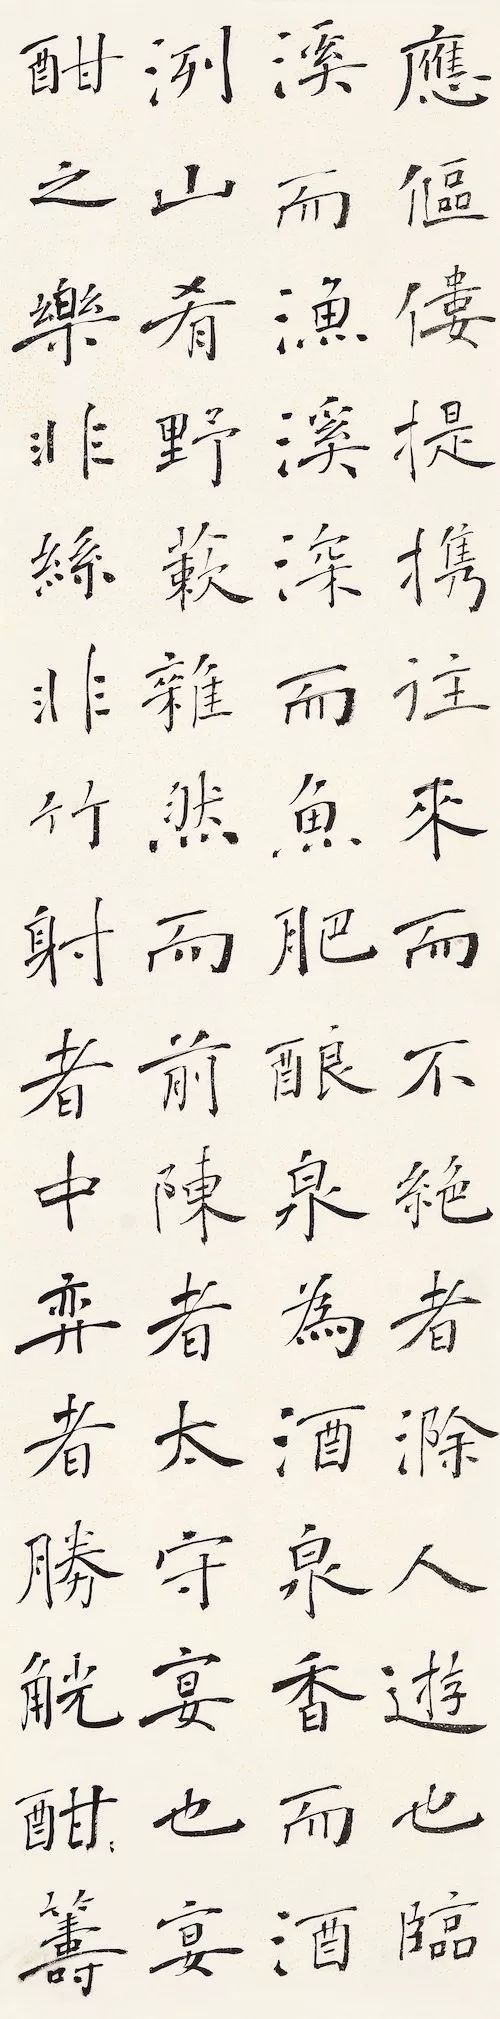 應傴僂提携往來而不絶者滁人遊也臨
溪而漁溪深而魚肥酿泉為酒泉香而酒
洌山肴野蔌雜然而前陳者太守宴也宴
酣之樂非絲非竹射者中弈者勝觥酣籌